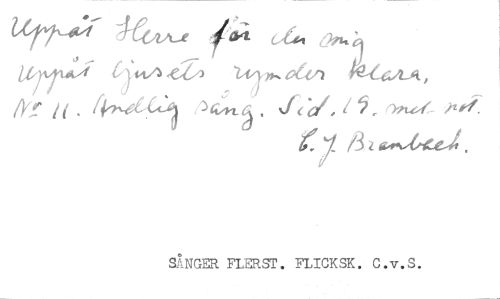 Uppåt Herre för du mig
uppåt ljusets rymder klara,
No 11. Andlig sång. Sid. 19. med not.
C. J. Brambach.
SÅNGER FLERST. FLICKSK. C.v.S.